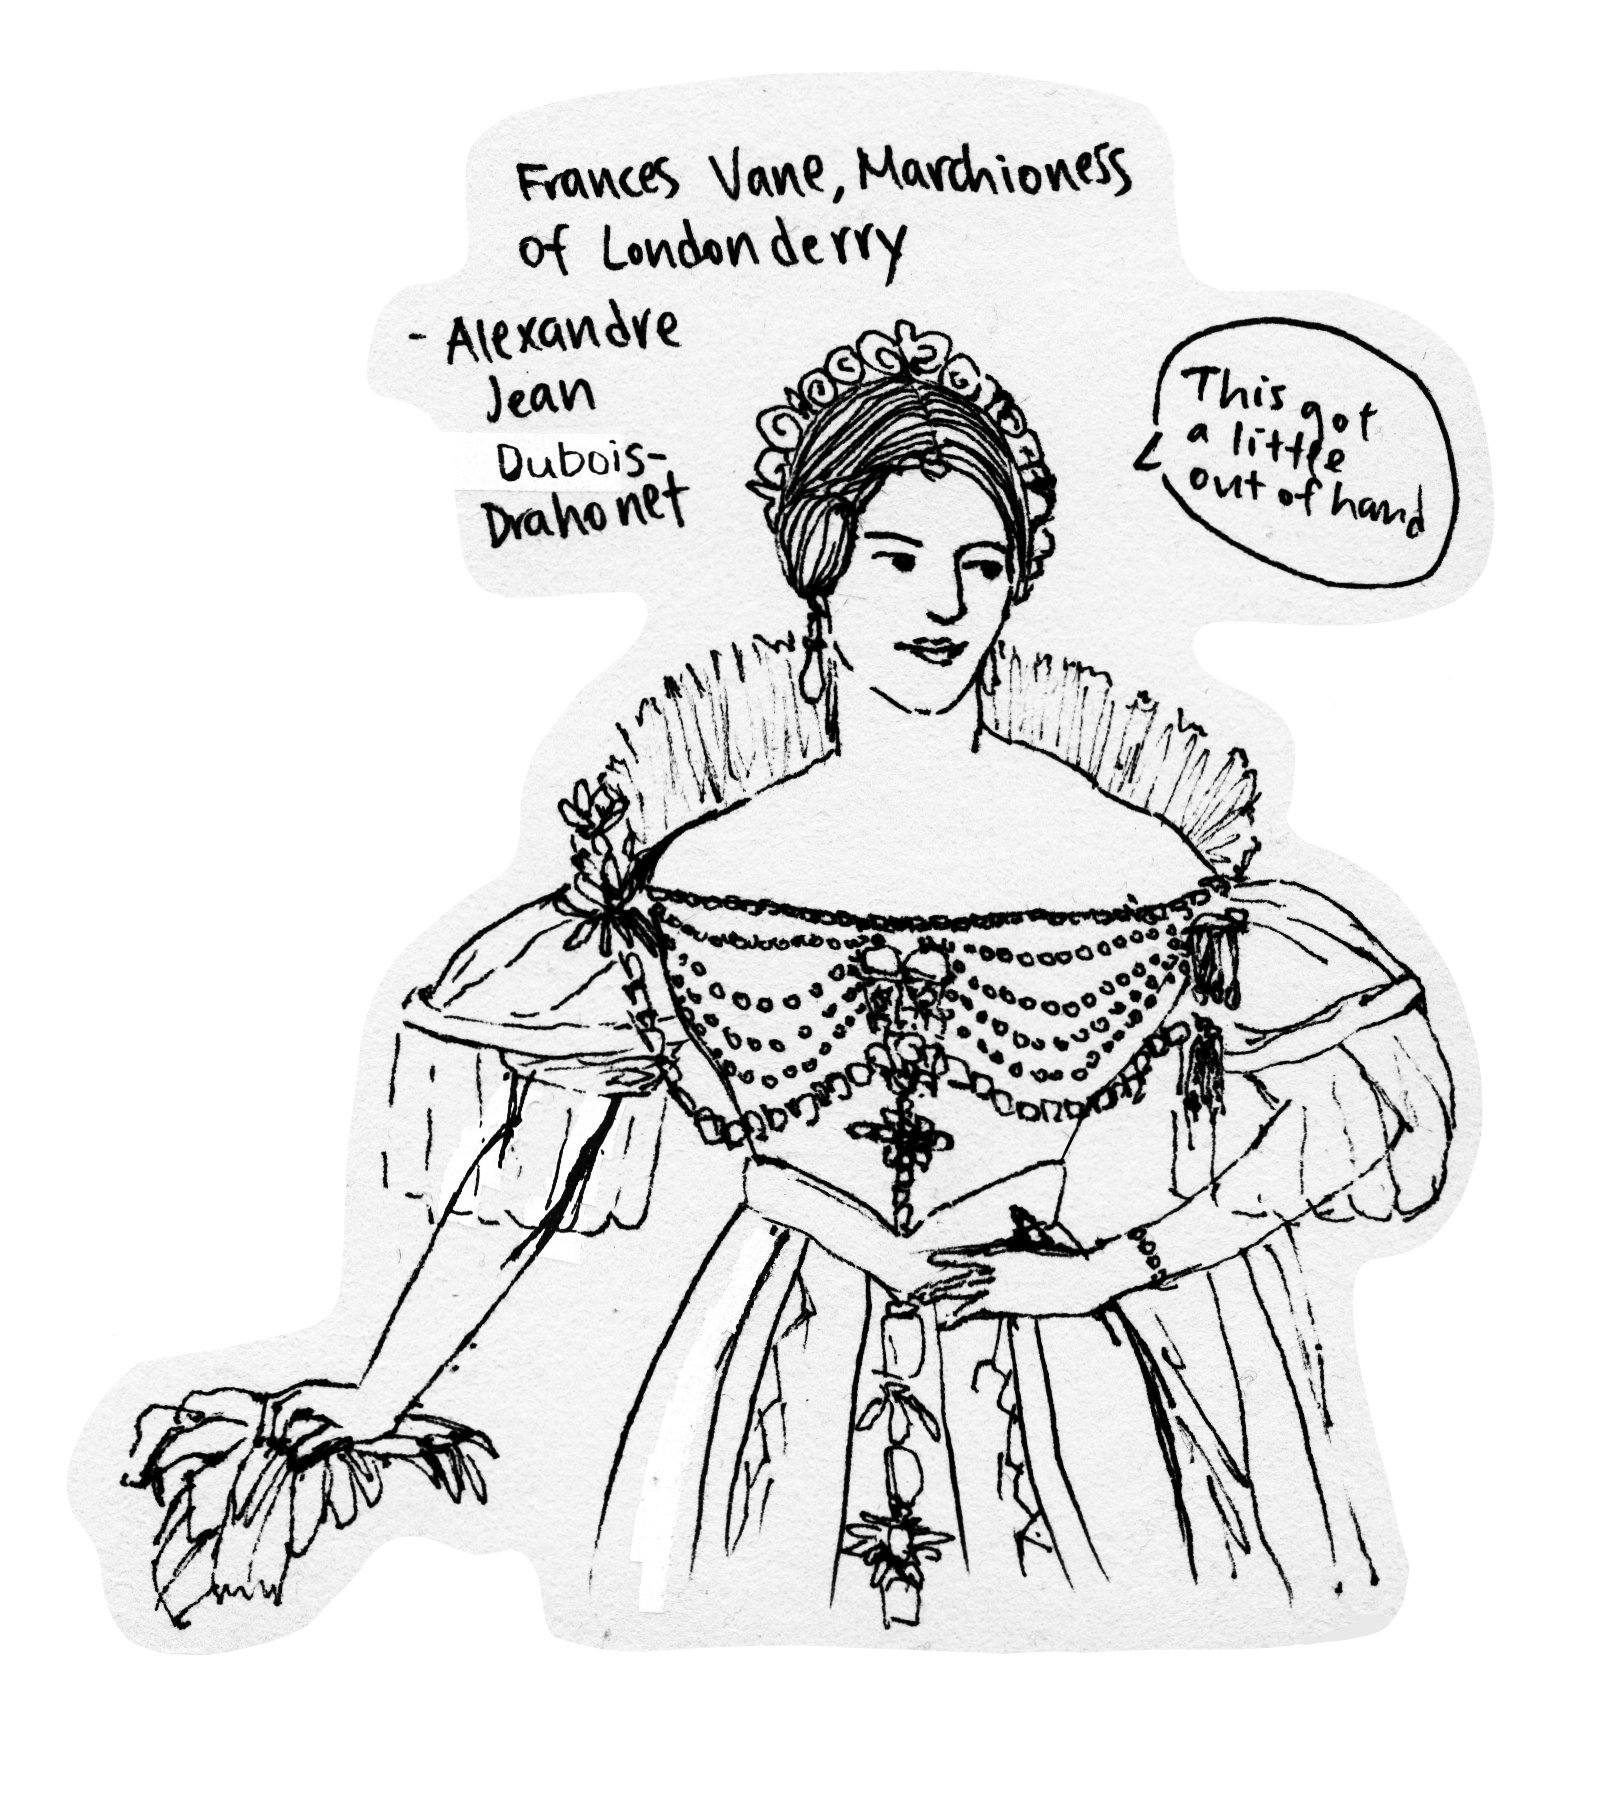 Frances Vane, Marchioness
of Londonderry
- Alexandre
Jean
Dubois-
Drahonet
This got
a little
out of hand